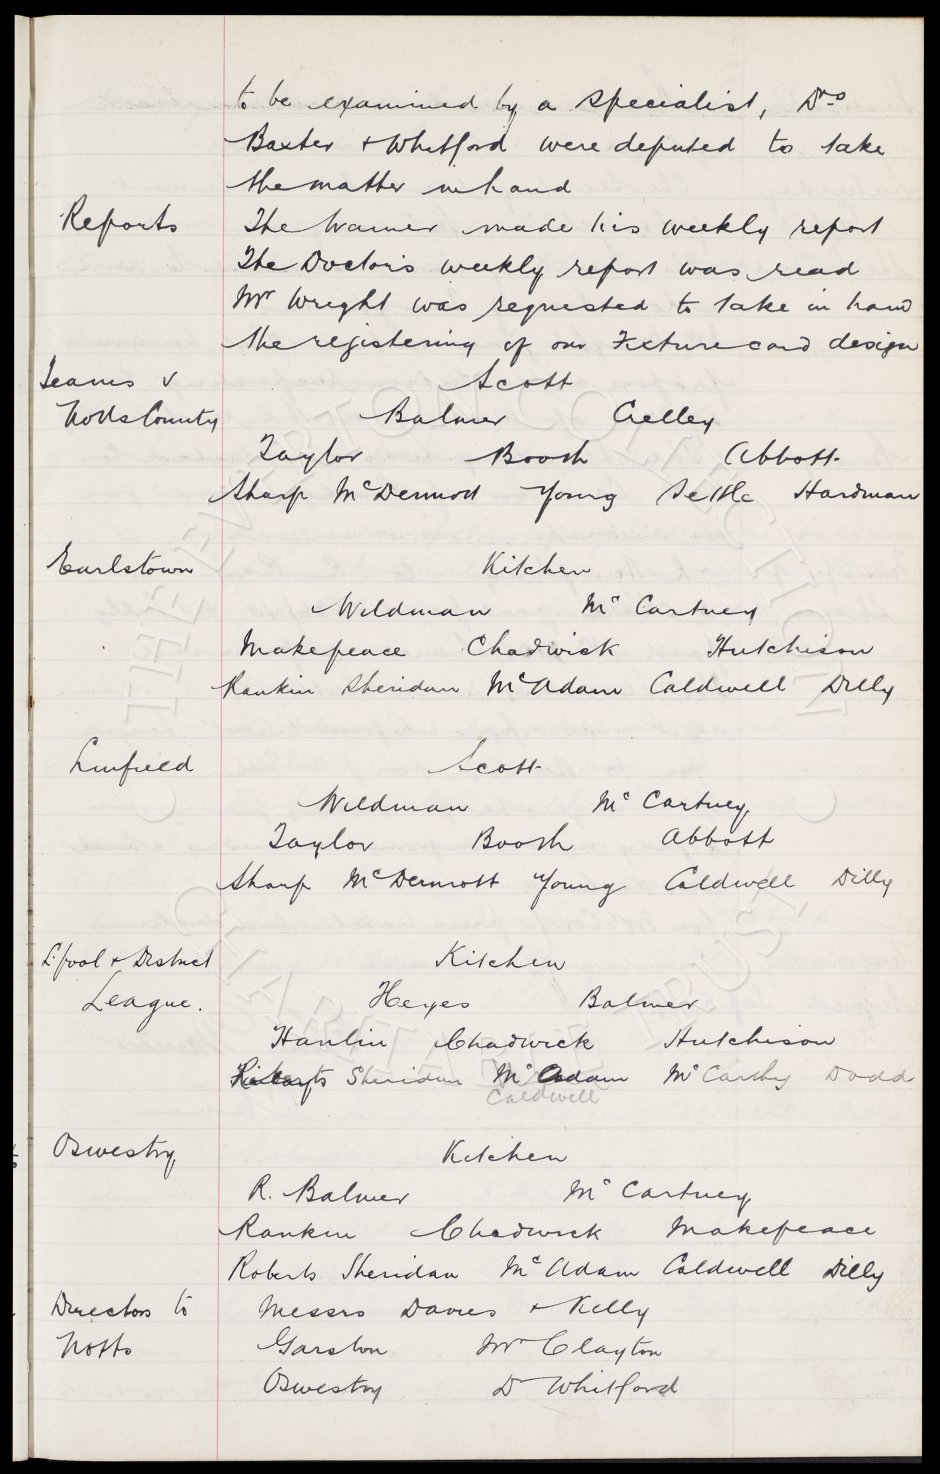 to be examined by a specialist, Drs
Baxter + Whitford were deputed to take
the matter in hand
Reports The Trainer made his weekly report
The Doctors weekly report was read
Mr Wright was requested to take in hand
the registering of our Fixture card design
Teams v Scott
Notts County Balmer Crelley
Taylor Booth Abbott
Sharp McDermott Young Settle Hardman
Earlstown Kitchen
Wildman McCartney
Makepeace Chadwick Hutchison
Rankin Sheridan McAdam Caldwell Dilly
Linfield Scott
Wildman McCartney
Taylor Booth Abbott
Sharp McDermott Young Caldwell Dilly
L'pool + District Kitchen
League. Heyes Balmer
Hanlin Chadwick Hutchison
Sheridan McAdam McCarthy Dodd
Caldwell
Oswestry Kitchen
R. Balmer McCartney
Rankin Chadwick Makepeace
Roberts Sheridan McAdam Caldwell Dilly
Directors to Messrs Davies + Kelly
Notts Garston Mr Clayton
Oswestry Dr Whitford
THE EVERTON COLLECTION
CHARITABLE TRUST